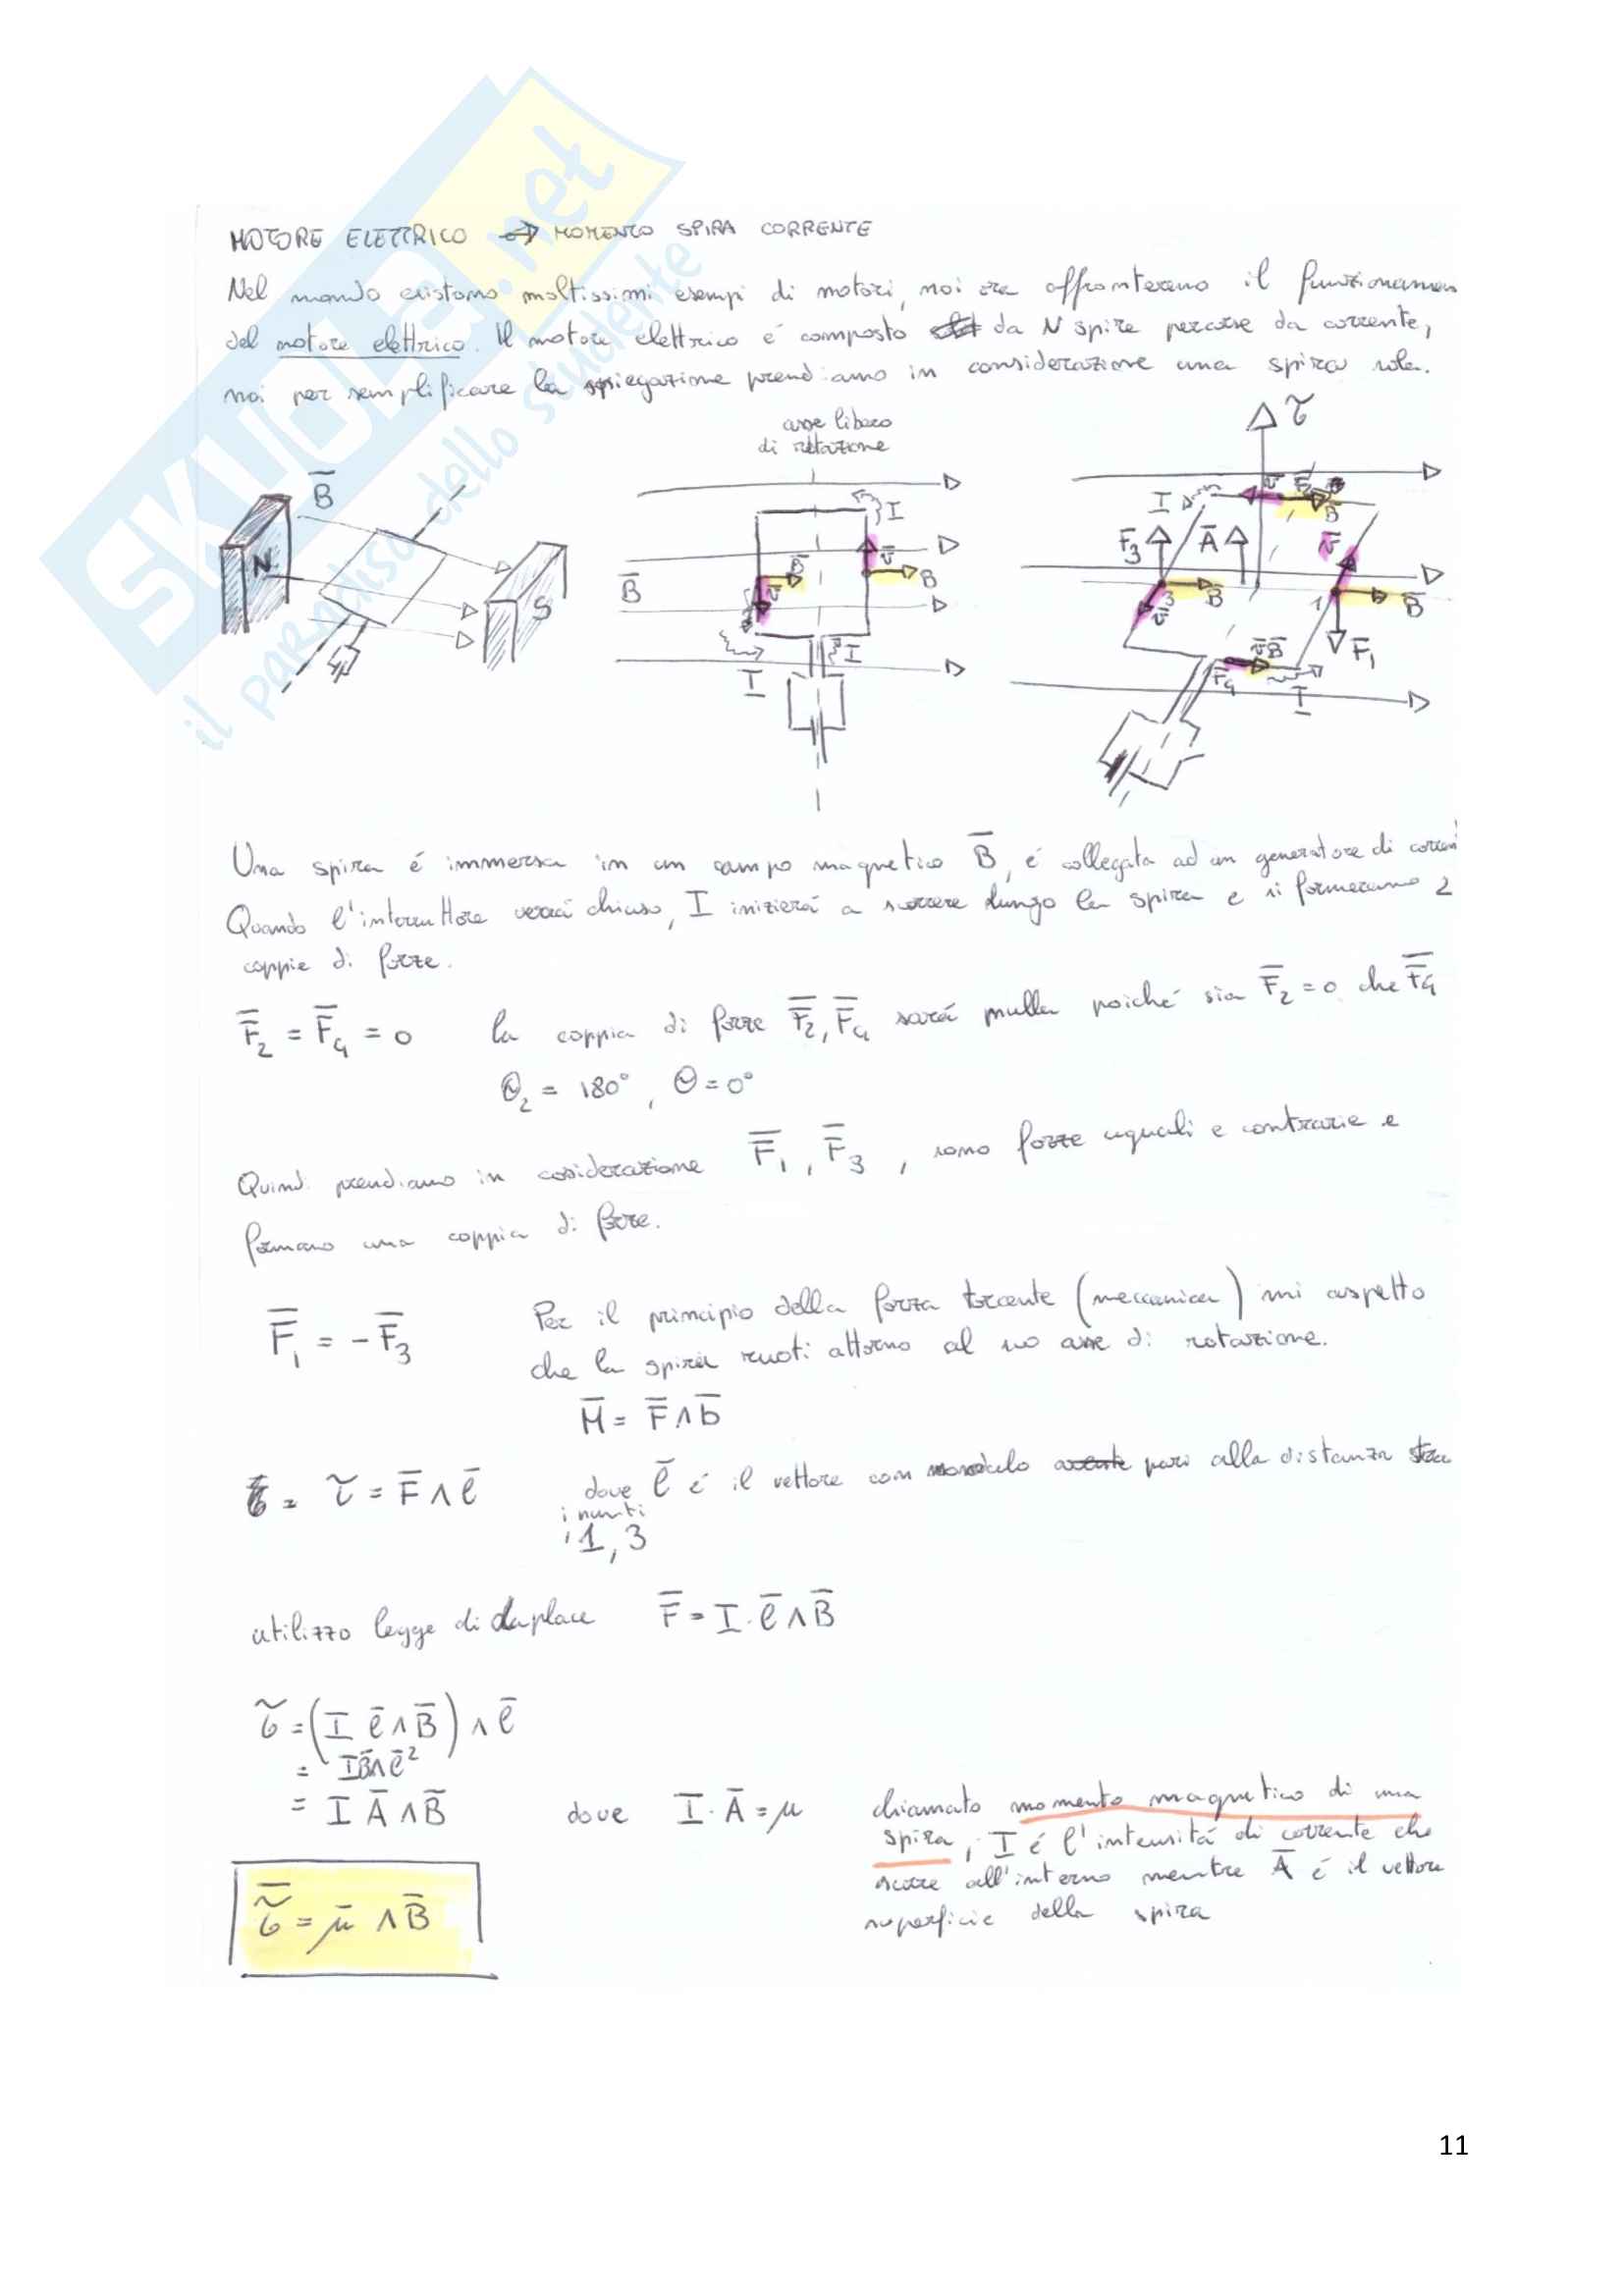 SKUOLA.net
il paradiso dello studente
MOTORE ELETTRICO → MOMENTO SPIRA CORRENTE
Nel mondo esistono moltissimi esempi di motori, noi ora affronteremo il funzionamen
del motore elettrico. Il motore elettrico é composto da N spire percorse da corrente,
noi per semplificare la spiegazione prendiamo in considerazione una spira sola.
asse libero
di rotazione
B̅
N
S
B̅
I
v̅
B̅
v̅
B̅
I
I
τ̃
I
v̅
B̅
F₃
A̅
v̅
3
B̅
v̅
1
B̅
F̅₁
v̅ B̅
F₄
I
Una spira é immersa in un campo magnetico B̅, é collegata ad un generatore di corren
Quando l'interruttore verrá chiuso, I inizierá a scorrere lungo la spira e si formeranno 2
coppie di forze.
F̅₂ = F̅₄ = 0 la coppia di forze F̅₂, F̅₄ sará nulla poiché sia F̅₂ = 0 che F̅₄
θ₂ = 180°, θ = 0°
Quindi prendiamo in cosiderazione F̅₁, F̅₃, sono forze uguali e contrarie e
formano una coppia di forze.
F̅₁ = -F̅₃ Per il principio della forza torcente (meccanica) mi aspetto
che la spira ruoti attorno al suo asse di rotazione.
M̅ = F̅ ∧ b̅
τ̃ = F̅ ∧ ℓ̅ dove ℓ̅ é il vettore con modulo pari alla distanza tra
i punti
1, 3
utilizzo legge di Laplace F̅ = I · ℓ̅ ∧ B̅
τ̃ = (I ℓ̅ ∧ B̅) ∧ ℓ̅
= I B̅ ∧ ℓ̅²
= I A̅ ∧ B̅ dove I · A̅ = μ chiamato momento magnetico di una
spira, I é l'intensitá di corrente che
scorre all'interno mentre A̅ é il vettore
superficie della spira
τ̃ = μ̅ ∧ B̅
11